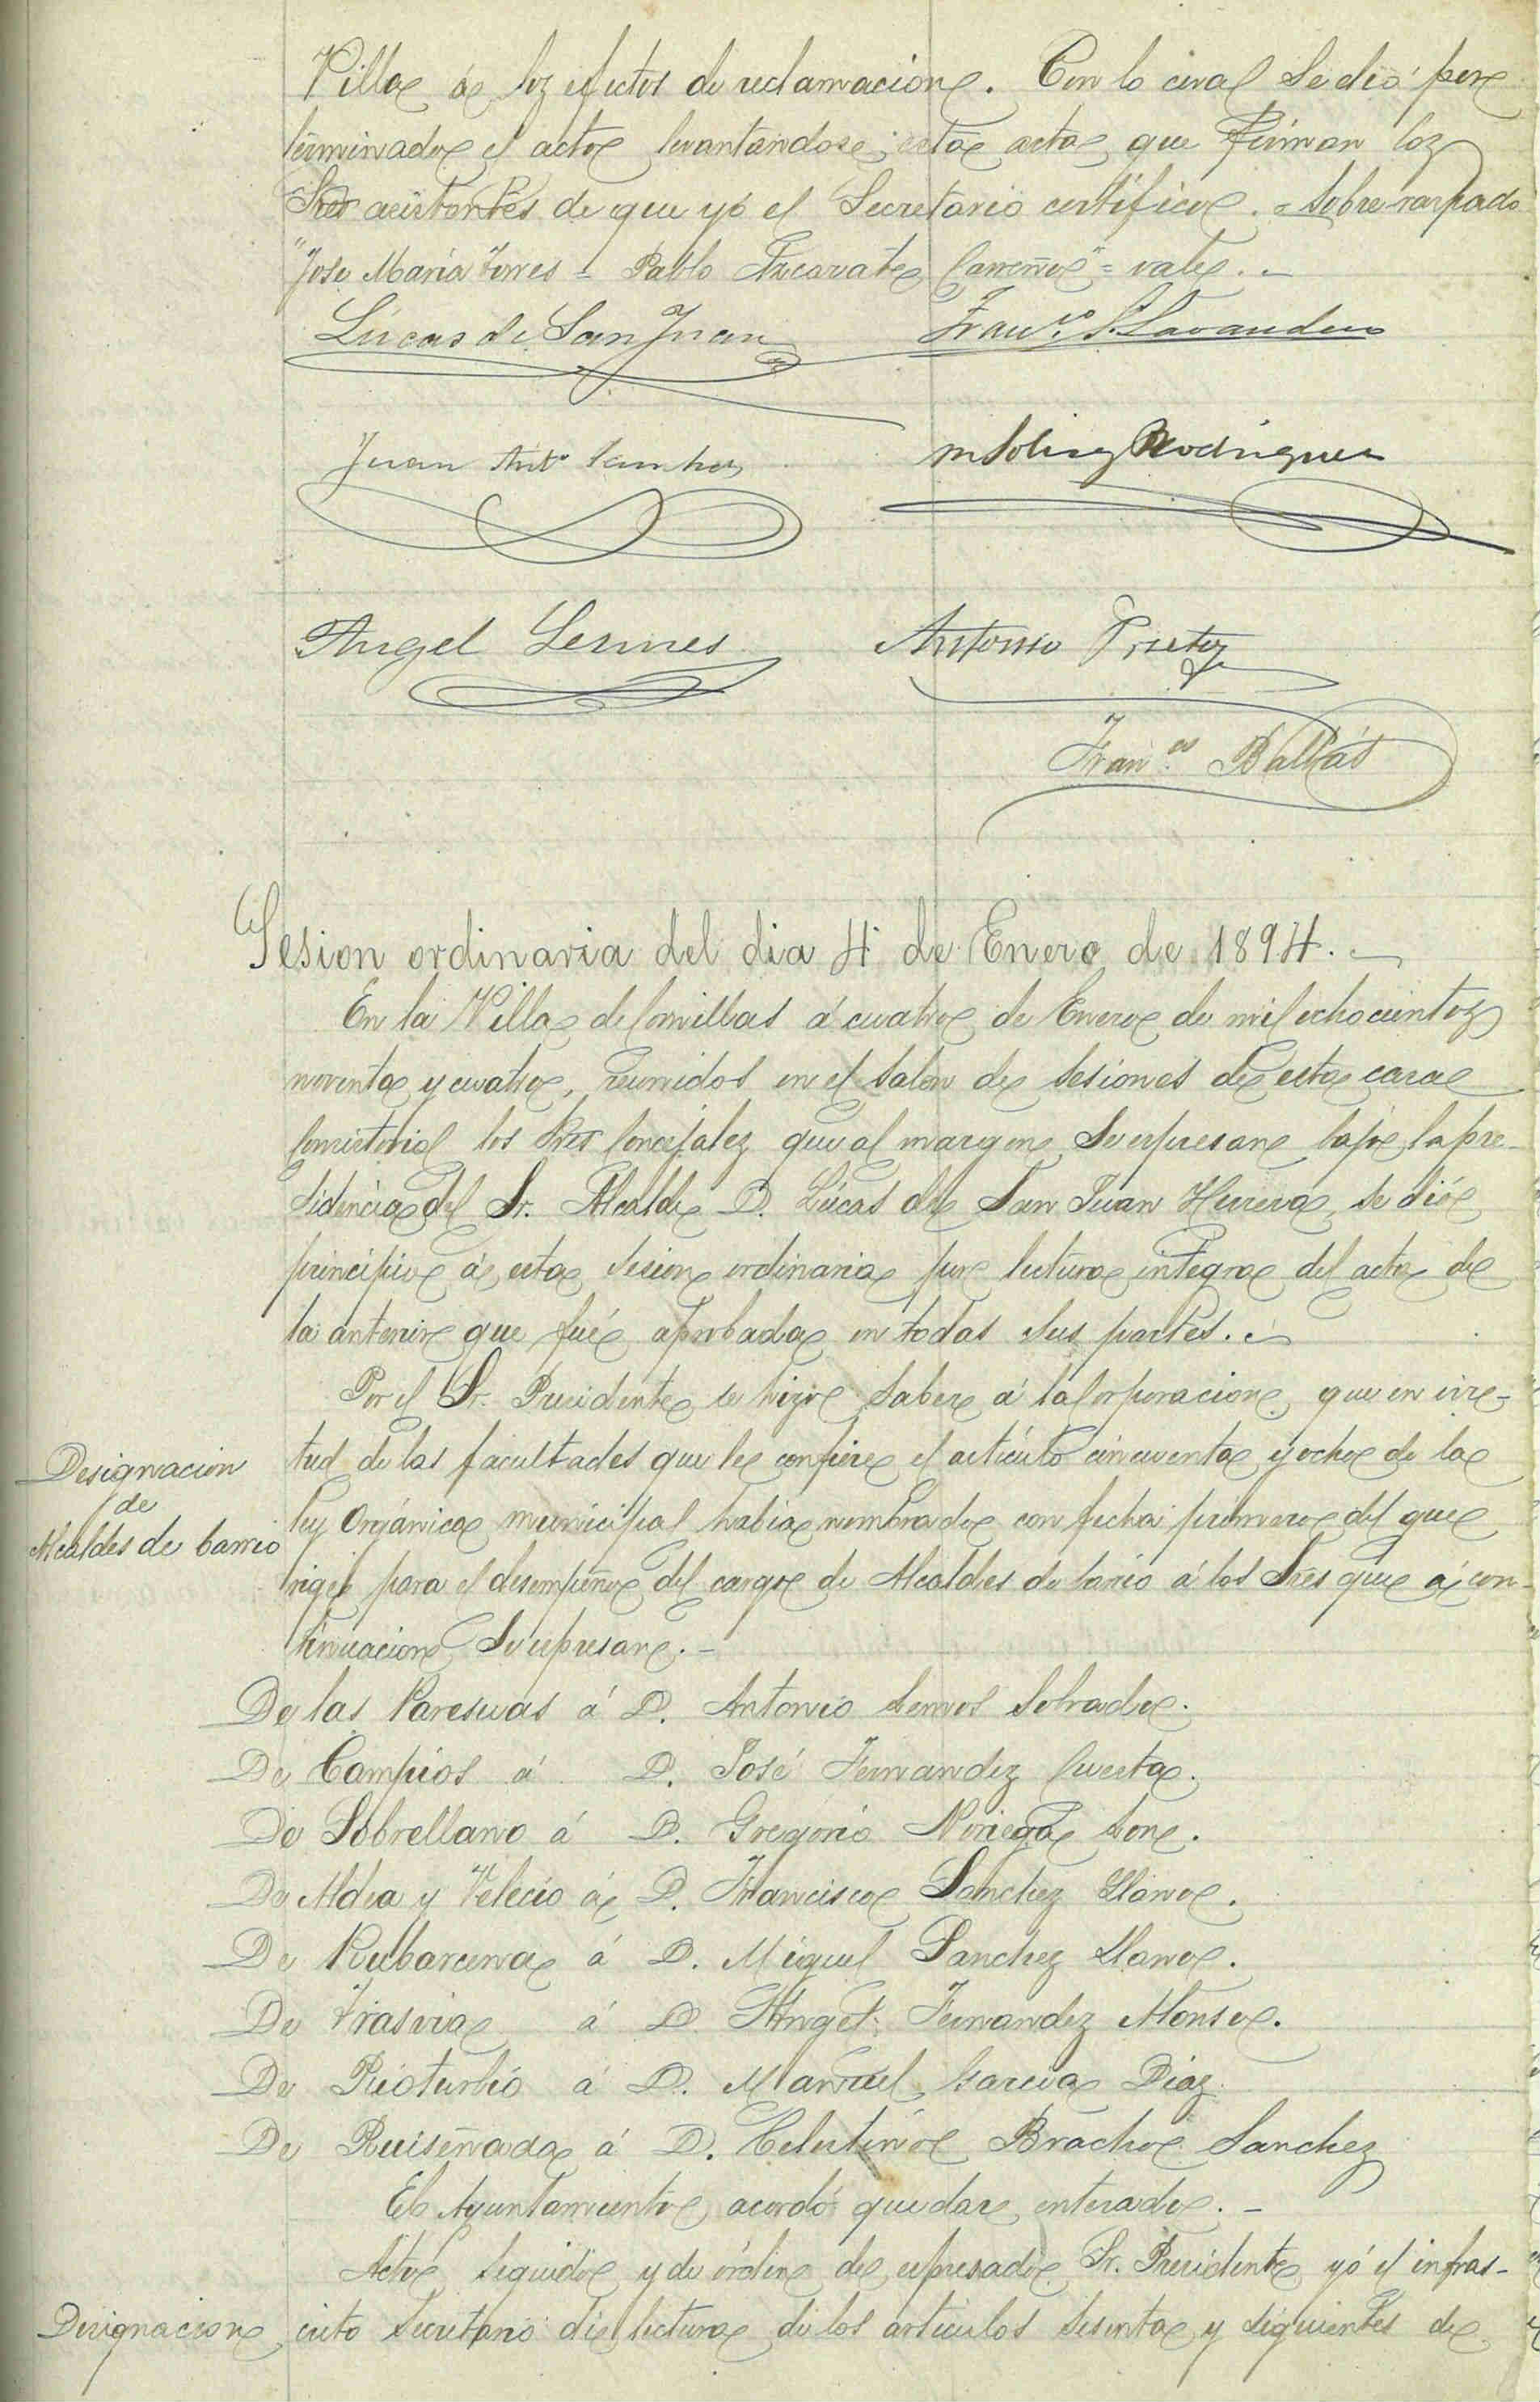 Villa á los efectos de reclamacion. Con lo cual se dió por
terminado el acto levantandose esta acta que firman los
Sres asistentes de que yó el Secretario certifico. = Sobre raspado
"José María Torres = Pablo Azcarate Carreño" = vale. =
Lúcas de San Juan Franco. S. Lavandero
Juan Anto Sanchez M Solis Rodriguez
Angel Lennes Antonio Prieto
Franco. Balbás
Sesion ordinaria del dia 4 de Enero de 1894. =
En la Villa de Comillas á cuatro de Enero de mil ochocientos
noventa y cuatro, reunidos en el Salon de Sesiones de esta casa
Consistorial los Sres Concejales que al margen se expresan bajo la pre-
sidencia del Sr. Alcalde D. Lúcas de San Juan Herrera, se dió
principio á esta Sesion ordinaria por lectura integra del acta de
la anterior que fué aprobada en todas sus partes. =
Por el Sr. Presidente se hizo saber á la Corporacion que en vir-
Designacion
de
Alcaldes de barrio
tud de las facultades que le confiere el artículo cincuenta y ocho de la
ley Orgánica municipal habia nombrado con fecha primero del que
rige para el desempeño del cargo de Alcaldes de barrio á los Sres que á con-
tinuacion se expresan. =
De las Paresuas á D. Antonio Sobrado.
De Campios á D. José Fernandez Cuesta.
De Sobrellano á D. Gregorio Noriega
De Aldea y Velecio á D. Francisco Sanchez Llano.
De Rubarcena á D. Miguel Sanchez Llano.
De Trasvia á D. Angel Fernandez Alonso.
De Rioturbio á D. Manuel Garcia Diaz
De Ruiseñada á D. Celestino Bracho Sanchez
El Ayuntamiento acordó quedar enterado. =
Acto seguido y de órden de expresado Sr. Presidente yó el infras-
Designacion
crito Secretario dí lectura de los artículos sesenta y siguientes de